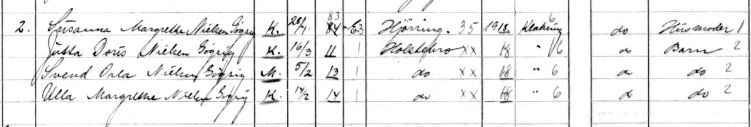 2. Susanna Margrethe Nielsen Gögrig K. 28/7 83 84 E3 Hjörring 35 1918 Klakring 6 do Husmoder 1
Jutta Doris Nielsen Gögrig K. 16/3 11 1 Holstebro XX 18 " 6 do Barn 2
Svend Orla Nielsen Gögrig M. 5/2 13 1 do XX 18 " 6 do do 2
Ulla Margrethe Nielsen Gögrig K. 14/2 14 1 do XX 18 " 6 do do 2